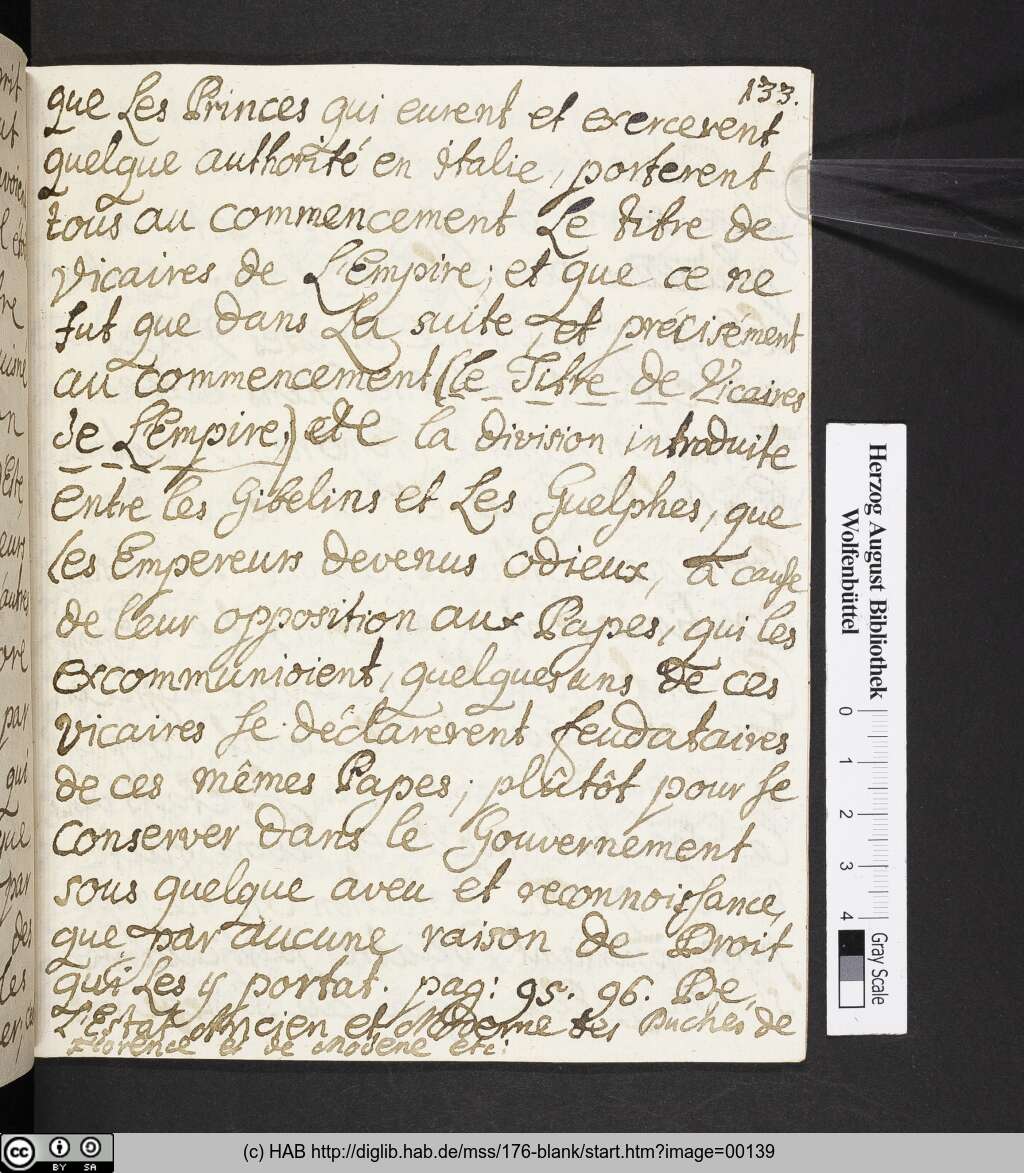 133.
que Les Princes qui eurent et exercerent
quelque authorité en Italie, porterent
tous au commencement Le titre de
Vicaires de L'Empire; et que ce ne
fut que dans La suite, et précisément
au commencement (le Titre de Vicaires
de L'Empire;) et de la division introduite
Entre les Gibelins et Les Guelphes, que
les Empereurs devenus odieux, à cause
de leur opposition aux Papes, qui les
excommunioient, quelquesuns de ces
vicaires se déclarerent feudataires
de ces mêmes Papes; plûtôt pour se
conserver dans le Gouvernement
sous quelque aveu et reconnoissance,
que par aucune raison de Droit
qui Les y portat. pag: 95. 96. De,
L'Estat Ancien et Moderne des Duchés de
Florence et de Modene etc:
Herzog August Bibliothek
Wolfenbüttel
0 1 2 3 4
Gray Scale
cc BY SA
(c) HAB http://diglib.hab.de/mss/176-blank/start.htm?image=00139